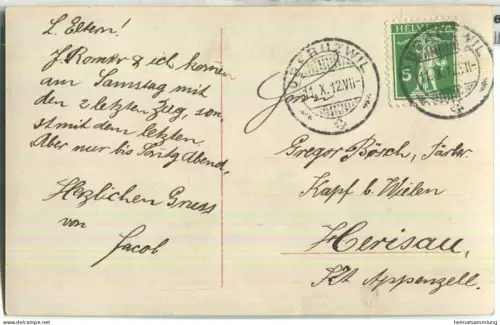 L. Eltern!
J. Romer & ich kommen
am Samstag mit
den 2 letzten Zug, son
st mit dem letzten.
Aber nur bis Sontg Abend,
Herzlichen Gruss
von
Jacob
OBERUZWIL
11.X.12.VII-
HELVETIA
5
Herrn
Gregor Bösch,
Kapf b. Wielen
Herisau,
Kt. Appenzell.
heimatsammlung.com